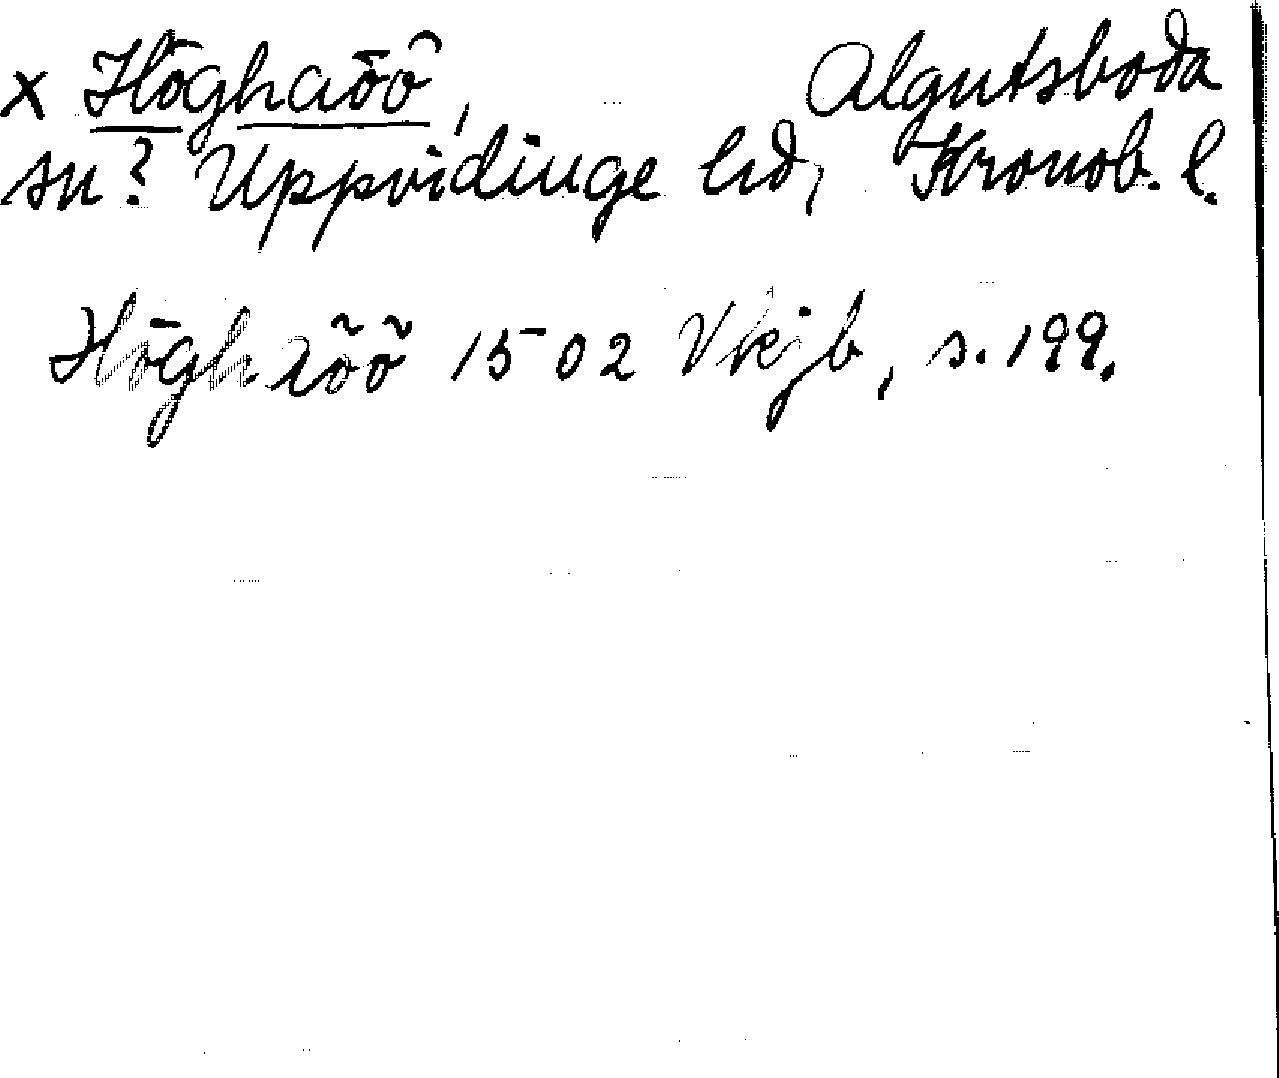 x Höghaöö, Algutsboda
sn? Uppvidinge hd, Kronob. l.
Högharöö 1502 Vkjb, s. 199.